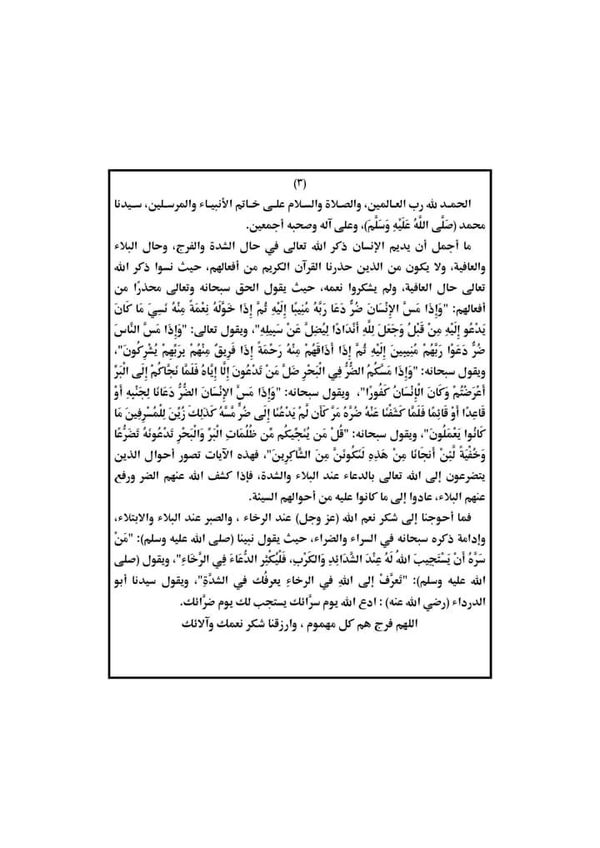 (٣)
الحمد لله رب العالمين، والصلاة والسلام على خاتم الأنبياء والمرسلين، سيدنا
محمد (صَلَّى اللَّهُ عَلَيْهِ وَسَلَّمَ)، وعلى آله وصحبه أجمعين.
ما أجمل أن يديم الإنسان ذكر الله تعالى في حال الشدة والفرج، وحال البلاء
والعافية، ولا يكون من الذين حذرنا القرآن الكريم من أفعالهم، حيث نسوا ذكر الله
تعالى حال العافية، ولم يشكروا نعمه، حيث يقول الحق سبحانه وتعالى محذرًا من
أفعالهم: "وَإِذَا مَسَّ الإِنْسَانَ ضُرٌّ دَعَا رَبَّهُ مُنِيبًا إِلَيْهِ ثُمَّ إِذَا خَوَّلَهُ نِعْمَةً مِنْهُ نَسِيَ مَا كَانَ
يَدْعُو إِلَيْهِ مِنْ قَبْلُ وَجَعَلَ لِلَّهِ أَنْدَادًا لِيُضِلَّ عَنْ سَبِيلِهِ"، ويقول تعالى: "وَإِذَا مَسَّ النَّاسَ
ضُرٌّ دَعَوْا رَبَّهُمْ مُنِيبِينَ إِلَيْهِ ثُمَّ إِذَا أَذَاقَهُمْ مِنْهُ رَحْمَةً إِذَا فَرِيقٌ مِنْهُمْ بِرَبِّهِمْ يُشْرِكُونَ"،
ويقول سبحانه: "وَإِذَا مَسَّكُمُ الضُّرُّ فِي الْبَحْرِ ضَلَّ مَنْ تَدْعُونَ إِلَّا إِيَّاهُ فَلَمَّا نَجَّاكُمْ إِلَى الْبَرِّ
أَعْرَضْتُمْ وَكَانَ الْإِنْسَانُ كَفُورًا"، ويقول سبحانه: "وَإِذَا مَسَّ الإِنْسَانَ الضُّرُّ دَعَانَا لِجَنْبِهِ أَوْ
قَاعِدًا أَوْ قَائِمًا فَلَمَّا كَشَفْنَا عَنْهُ ضُرَّهُ مَرَّ كَأَن لَّمْ يَدْعُنَا إِلَى ضُرٍّ مَّسَّهُ كَذَلِكَ زُيِّنَ لِلْمُسْرِفِينَ مَا
كَانُوا يَعْمَلُونَ"، ويقول سبحانه: "قُلْ مَن يُنَجِّيكُم مِّن ظُلُمَاتِ الْبَرِّ وَالْبَحْرِ تَدْعُونَهُ تَضَرُّعًا
وَخُفْيَةً لَّئِنْ أَنجَانَا مِنْ هَذِهِ لَنَكُونَنَّ مِنَ الشَّاكِرِينَ"، فهذه الآيات تصور أحوال الذين
يتضرعون إلى الله تعالى بالدعاء عند البلاء والشدة، فإذا كشف الله عنهم الضر ورفع
عنهم البلاء، عادوا إلى ما كانوا عليه من أحوالهم السيئة.
فما أحوجنا إلى شكر نعم الله (عز وجل) عند الرخاء ، والصبر عند البلاء والابتلاء،
وإدامة ذكره سبحانه في السراء والضراء، حيث يقول نبينا (صلى الله عليه وسلم): "مَنْ
سَرَّهُ أَنْ يَسْتَجِيبَ اللهُ لَهُ عِنْدَ الشَّدَائِدِ وَالكَرْبِ، فَلْيُكْثِرِ الدُّعَاءَ فِي الرَّخَاءِ"، ويقول (صلى
الله عليه وسلم): "تَعَرَّفْ إلى اللهِ في الرخاءِ يعرفُك في الشدَّةِ"، ويقول سيدنا أبو
الدرداء (رضي الله عنه) : ادع الله يوم سرَّائك يستجب لك يوم ضرَّائك.
اللهم فرج هم كل مهموم ، وارزقنا شكر نعمك وآلائك